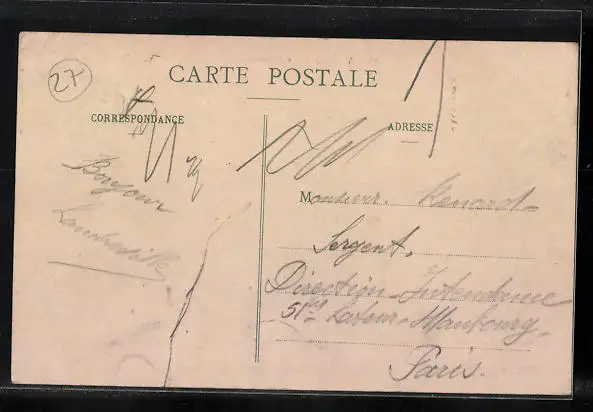 27
CARTE POSTALE
CORRESPONDANCE
ADRESSE
Bonjour
Monsieur Renard
Sergent.
Direction Intendance
51 bis Latour-Maubourg.
Paris.